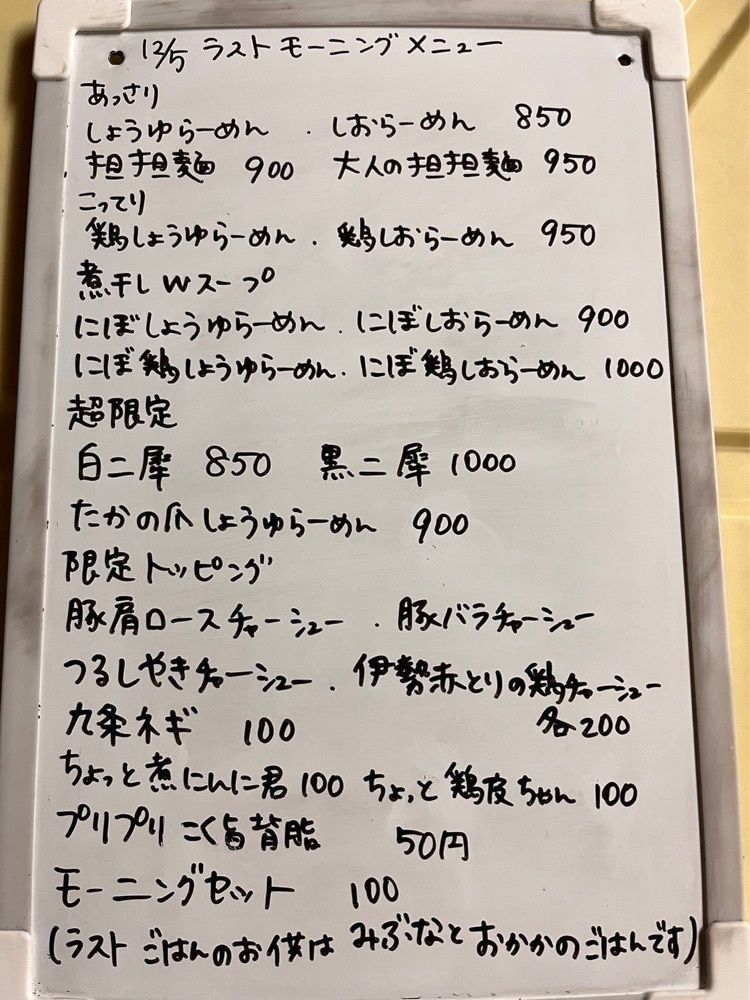 12/5 ラストモーニングメニュー
あっさり
しょうゆらーめん . しおらーめん 850
担担麺 900 大人の担担麺 950
こってり
鶏しょうゆらーめん . 鶏しおらーめん 950
煮干しWスープ
にぼしょうゆらーめん . にぼしおらーめん 900
にぼ鶏しょうゆらーめん . にぼ鶏しおらーめん 1000
超限定
白二犀 850 黒二犀 1000
たかの爪しょうゆらーめん 900
限定トッピング
豚肩ロースチャーシュー . 豚バラチャーシュー
つるしやきチャーシュー . 伊勢赤とりの鶏チャーシュー
各200
九条ネギ 100
ちょっと煮にんに君 100 ちょっと鶏皮ちゃん 100
プリプリこく旨背脂 50円
モーニングセット 100
(ラスト ごはんのお供は みぶなと おかかのごはんです)